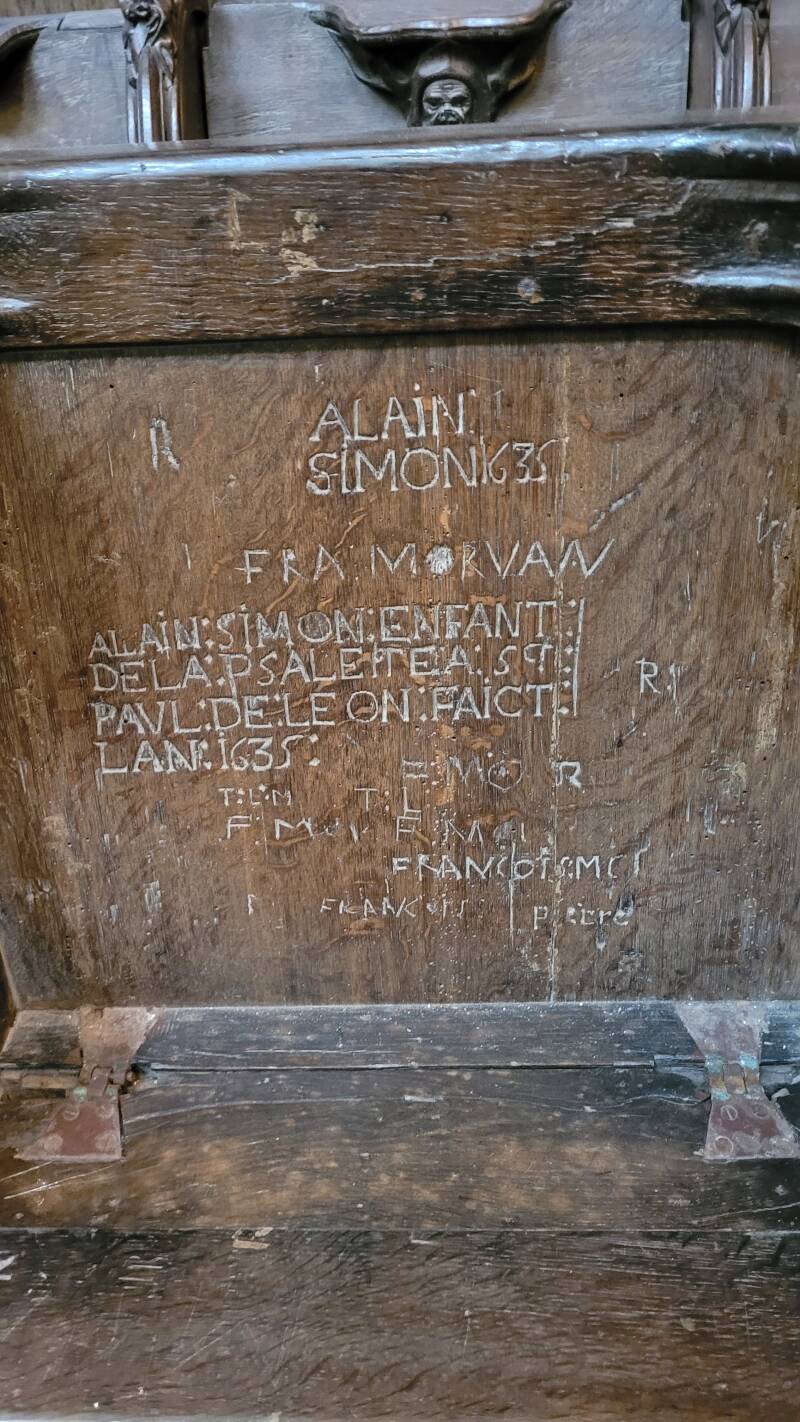 R
ALAIN
SIMON 1635
FRA MORVAN
ALAIN:SIMON:ENFANT:
DELA:PSALETTE:A:ST:
PAVL:DE:LEON:FAICT:
LAN:1635:
R:
MO R
T:L:M T:L
F M F M
FRANCOIS:M
FRANCOIS